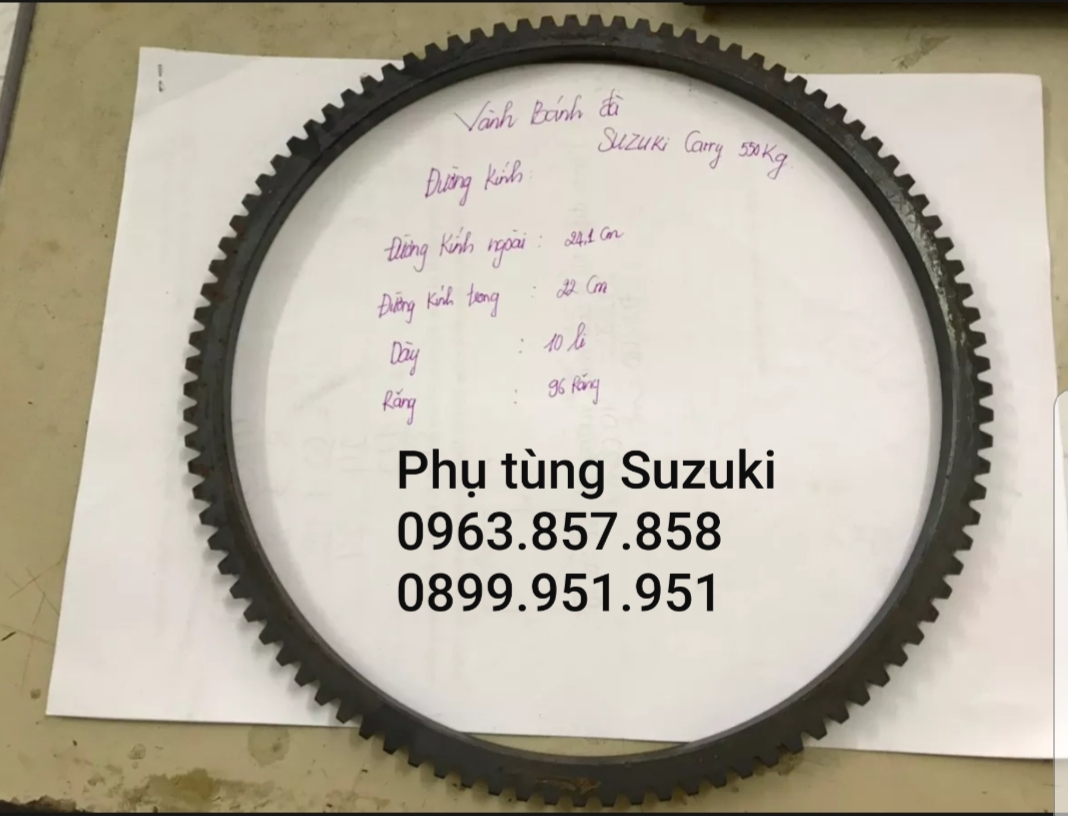 Vành Bánh đà
Suzuki Carry 550Kg.
Đường Kính:
Đường Kính ngoài : 24,1 Cm
Đường Kính trong : 22 Cm
Dày : 10 li
Răng : 96 Răng
Phụ tùng Suzuki
0963.857.858
0899.951.951